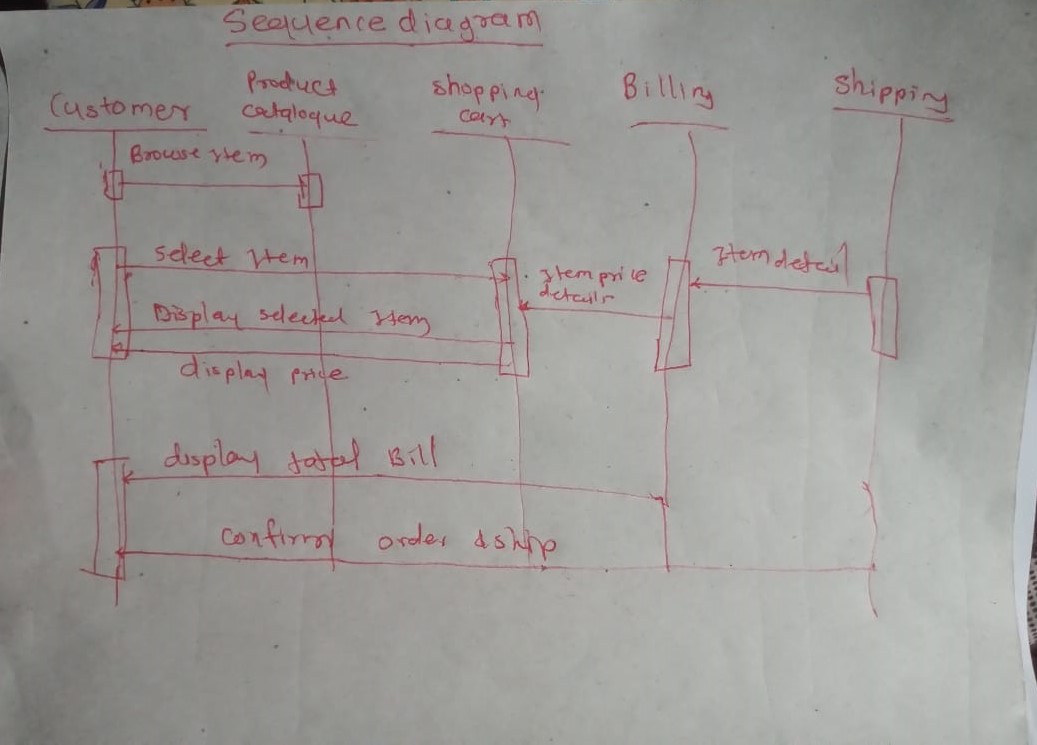 Sequence diagram
Customer
Product
catalogue
shopping
cart
Billing
Shipping
Browse Item
Select Item
Item price
details
Item detail
Display selected Item
display price
display total Bill
Confirm order & ship